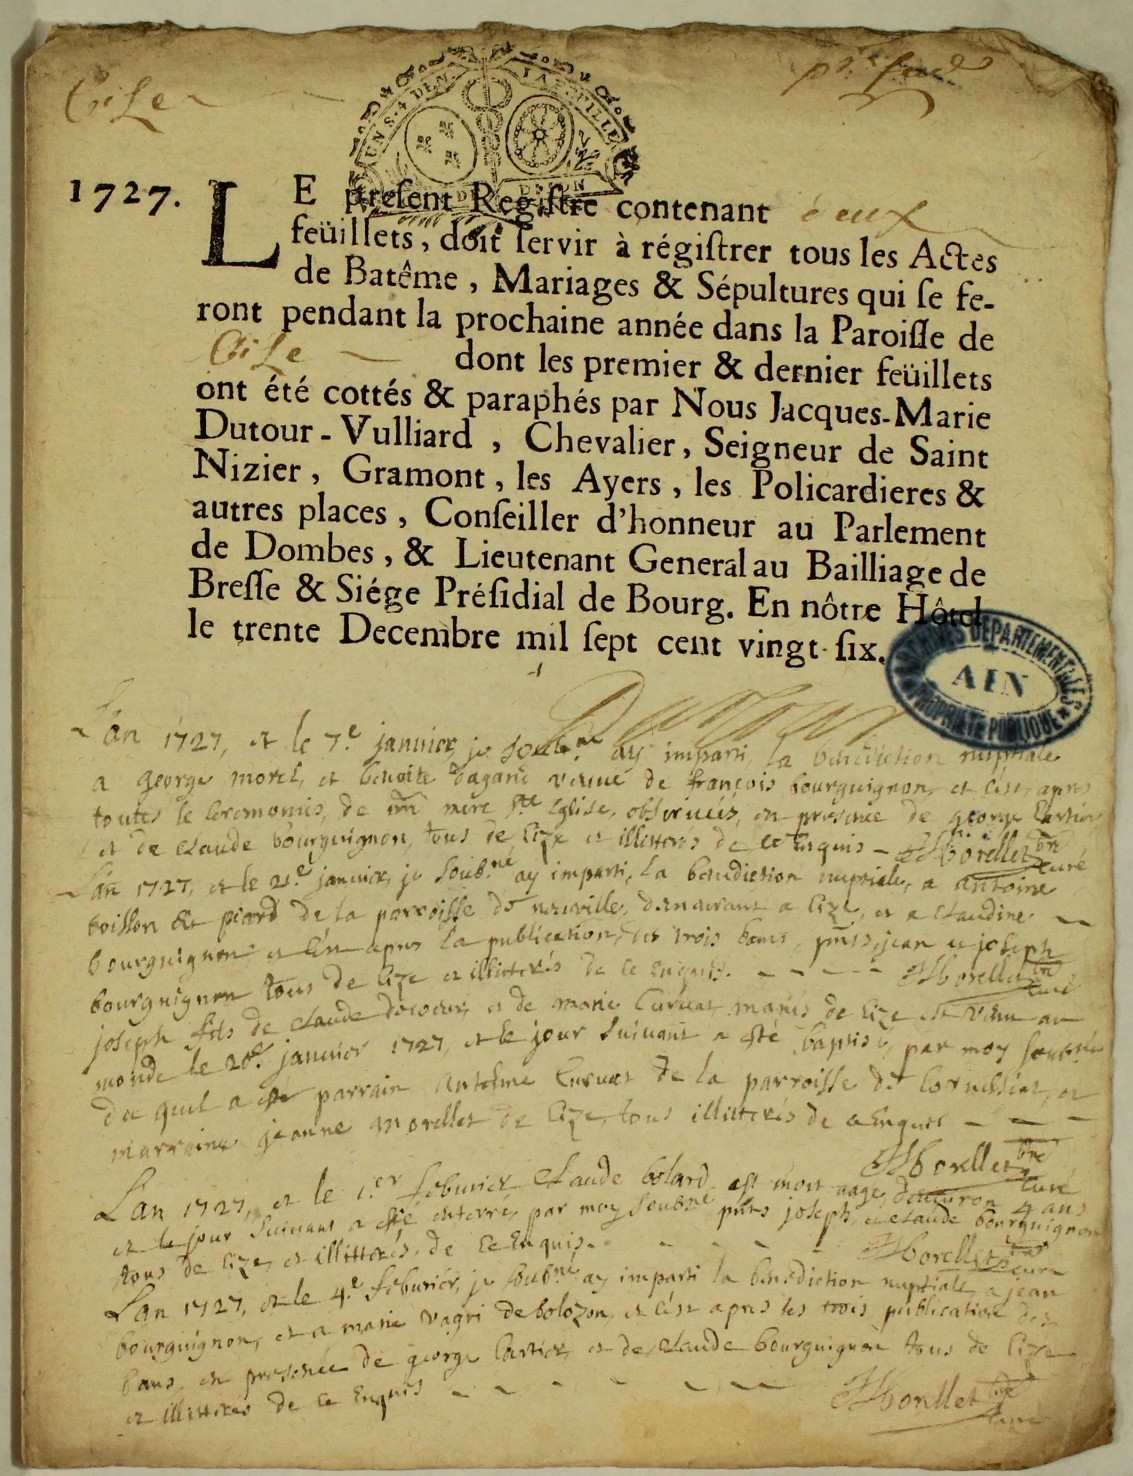 Cise
UN S. 4 DEN. LA FEUILLE
1727.
LE preſent Regiſtre contenant deux
feüillets, doit ſervir à régiſtrer tous les Actes
de Batême, Mariages & Sépultures qui ſe fe-
ront pendant la prochaine année dans la Paroiſſe de
Cise dont les premier & dernier feüillets
ont été cottés & paraphés par Nous Jacques-Marie
Dutour-Vulliard, Chevalier, Seigneur de Saint
Nizier, Gramont, les Ayers, les Policardieres &
autres places, Conſeiller d'honneur au Parlement
de Dombes, & Lieutenant General au Bailliage de
Breſſe & Siége Préſidial de Bourg. En nôtre Hôtel
le trente Decembre mil ſept cent vingt-ſix.
ARCHIVES DEPARTEMENTALES
AIN
PROPRIETE PUBLIQUE
Dutour
L'an 1727, et le 7.e janvier, je soub.né ay imparti la benediction nuptiale
a george morel, et benoite veuve de françois bourguignon, et c'est apres
toutes le ceremonies, de mere s.te Eglise, observées, en presence de george Cartier
et de claude bourguignon, tous de Cize et illitterés de ce Enquis - Morellet p.bre curé
L'an 1727, et le 21.e janvier, je soub.né ay imparti, la benediction nuptiale, a antoine
piard de la parroisse de neuville, demeurant a Cize, et a claudine
bourguignon et c'est apres la publication, des trois bans, p.nts, jean et joseph
bourguignon tous de Cize et illitterés de ce Enquis. - - - - - Morellet p.bre curé
joseph fils de claude et de marie Curvat mariés de Cize est venu au
monde le 20.e janvier 1727, et le jour suivant a esté baptisé, par moy soub.né
du quel a esté parrain Antelme Curvat de la parroisse de Corveissiat, et
marraine jeanne Morellet de Cize, tous illitterés de ce Enquis - - -
Morellet p.bre curé
L'an 1727, et le 1.er febvrier Claude bolard est mort aagé, d'environ 4 ans
et le jour suivant a esté enterré, par moy soub.né p.nts joseph, et claude bourguignon
tous de Cize, et illitterés, de ce Enquis. - - - - - Morellet p.bre curé
L'an 1727, et le 4.e febvrier, je soub.né ay imparti la benediction nuptiale, a jean
bourguignon, et a marie vagri de bolozon, et c'est apres les trois publication des
bans, en presence de george Cartier, et de, claude bourguignon tous de Cize
et illitterés de ce Enquis - - - - - Morellet p.bre curé